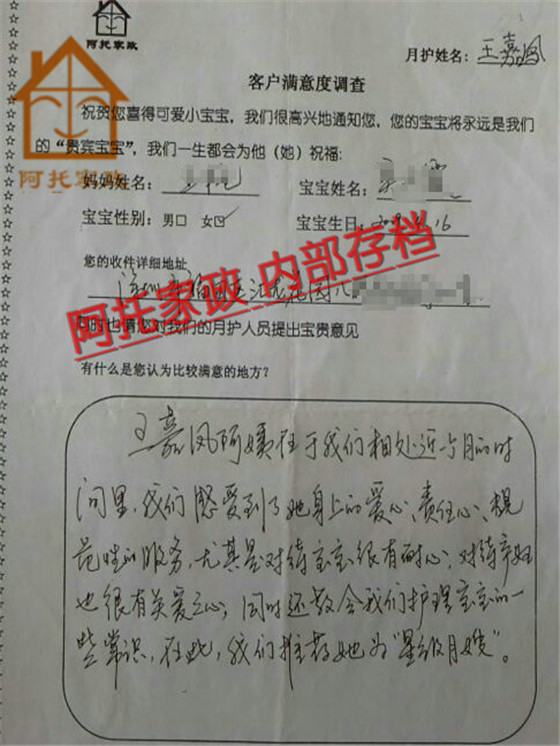 阿托家政
月护姓名：王嘉凤
客户满意度调查
阿托家政
祝贺您喜得可爱小宝宝，我们很高兴地通知您，您的宝宝将永远是我们
的“贵宾宝宝”，我们一生都会为他（她）祝福：
妈妈姓名： 宝宝姓名：
宝宝性别：男□ 女☑ 宝宝生日： 16
您的收件详细地址
阿托家政 内部存档
同时也请您对我们的月护人员提出宝贵意见
有什么是您认为比较满意的地方？
王嘉凤阿姨在于我们相处近一个月的时
间里，我们感受到了她身上的爱心、责任心、规
范性的服务，尤其是对待宝宝很有耐心，对待产妇
也很有关爱之心；同时还教会我们护理宝宝的一
些常识，在此，我们推荐她为“星级月嫂”。